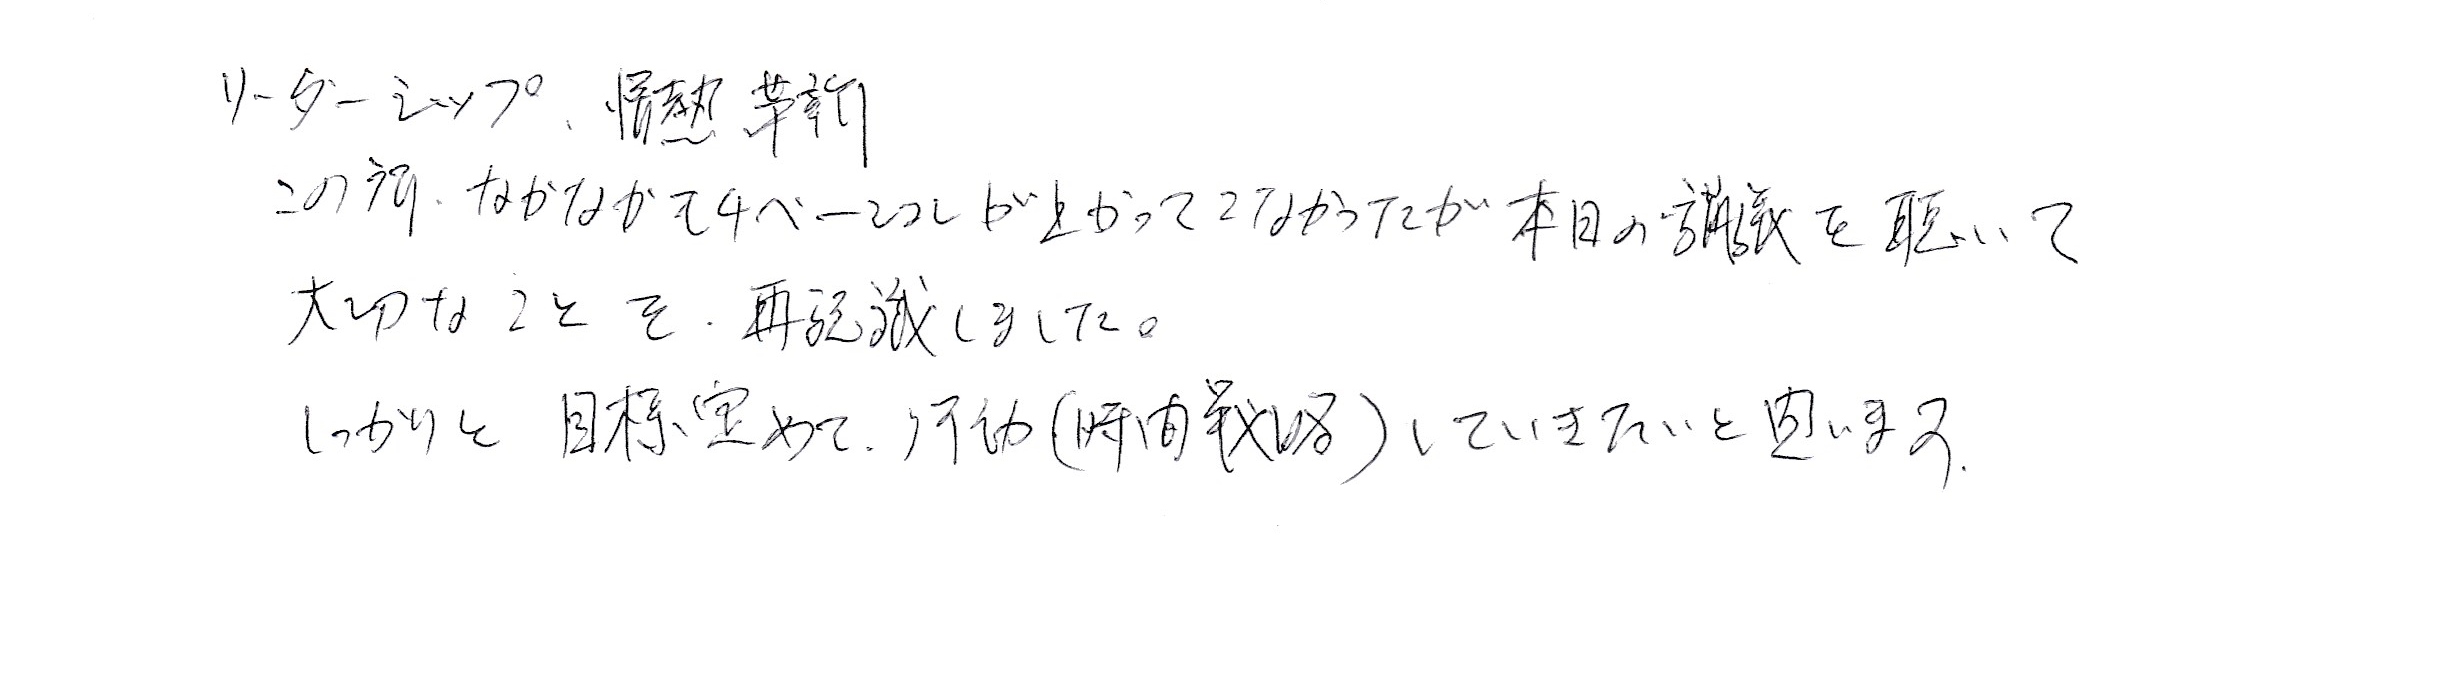 リーダーシップ、情熱 革新
この所、なかなかモチベーションが上がってこなかったが本日の講義を聴いて
大切なことを、再認識しました。
しっかりと 目標定めて、行動(時間戦略)していきたいと思います。